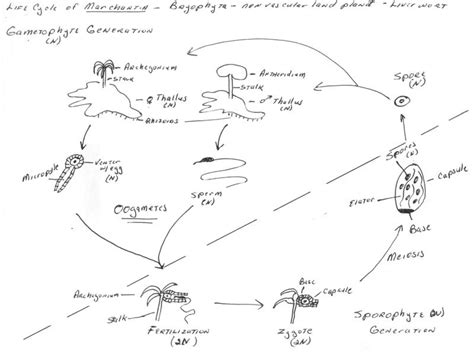 Life Cycle of Marchantia - Bryophyte - nonvascular land plant - Liverwort
Gametophyte Generation
(N)
Archegonium
Stalk
♀ Thallus
(N)
Rhizoids
Antheridium
Stalk
♂ Thallus
(N)
Spore
(N)
Micropyle
Venter
w/egg
(N)
Sperm
(N)
Oogametes
Spores
(N)
Capsule
Elater
Base
Meiosis
Archegonium
Stalk
Fertilization
(2N)
Base
Capsule
Zygote
(2N)
Sporophyte (2N)
Generation